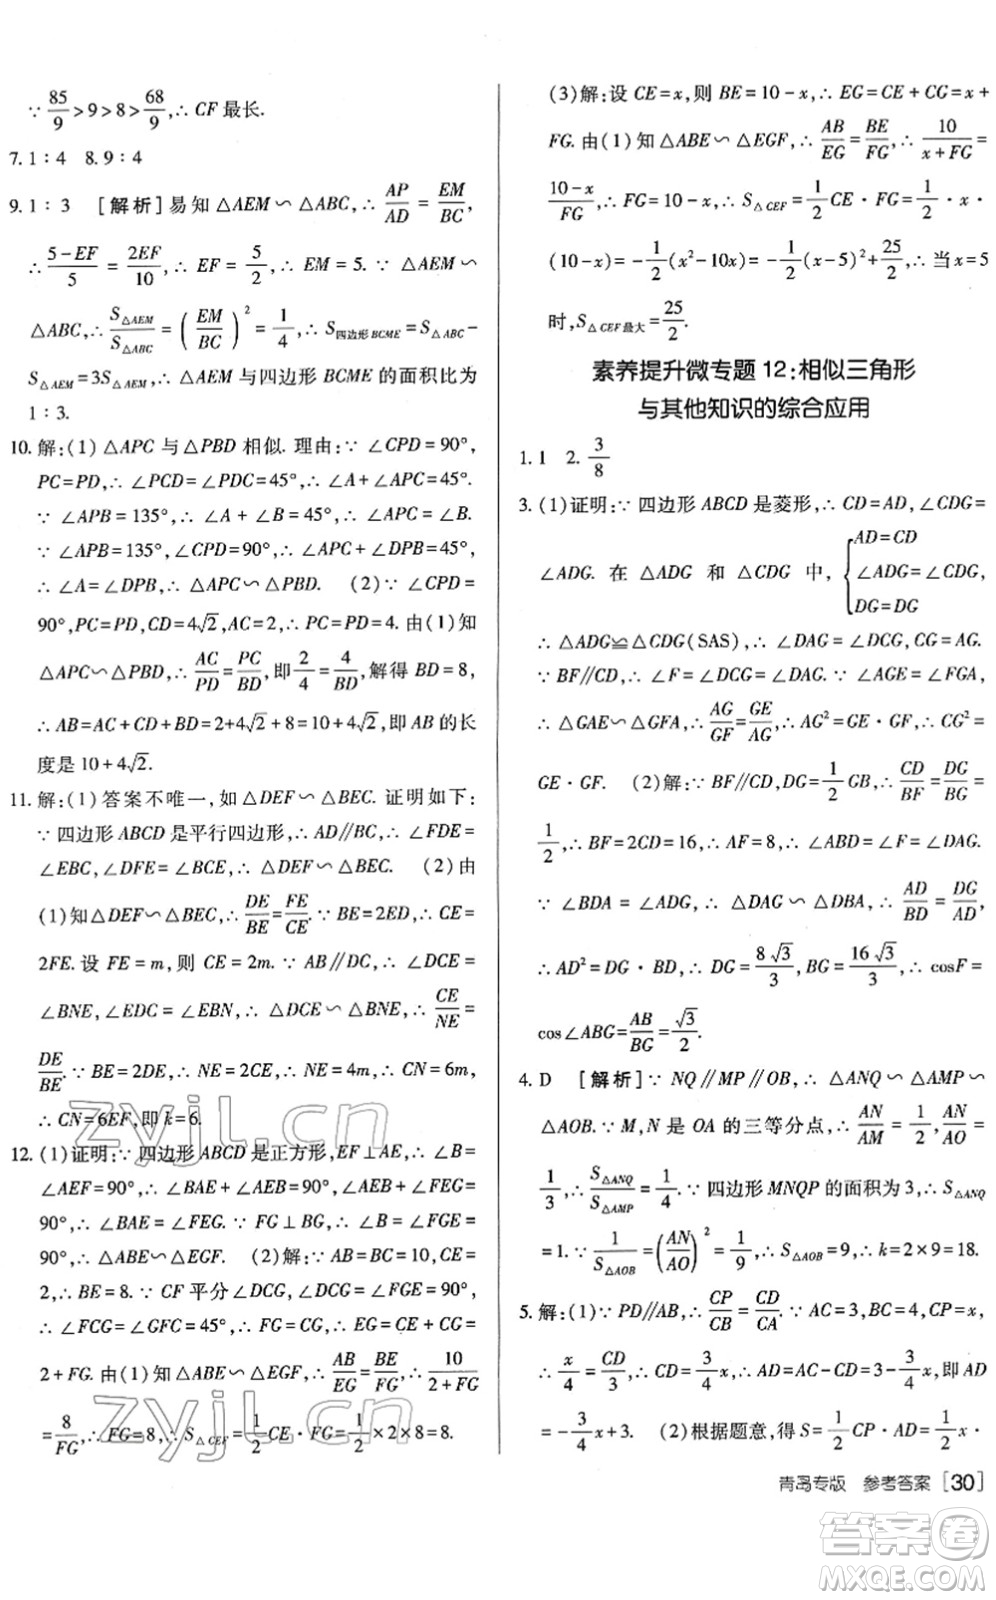 ∵ 85/9 > 9 > 8 > 68/9, ∴ CF 最长.
7. 1∶4 8. 9∶4
9. 1∶3 [解析] 易知 △AEM∽△ABC, ∴ AP/AD = EM/BC,
∴ (5-EF)/5 = 2EF/10, ∴ EF = 5/2, ∴ EM = 5. ∵ △AEM∽
△ABC, ∴ S△AEM/S△ABC = (EM/BC)² = 1/4, ∴ S四边形BCME = S△ABC -
S△AEM = 3S△AEM. ∴ △AEM 与四边形 BCME 的面积比为
1∶3.
10. 解:(1) △APC 与 △PBD 相似. 理由:∵ ∠CPD = 90°,
PC = PD, ∴ ∠PCD = ∠PDC = 45°, ∴ ∠A + ∠APC = 45°.
∵ ∠APB = 135°, ∴ ∠A + ∠B = 45°, ∴ ∠APC = ∠B.
∵ ∠APB = 135°, ∠CPD = 90°, ∴ ∠APC + ∠DPB = 45°,
∴ ∠A = ∠DPB, ∴ △APC∽△PBD. (2)∵ ∠CPD =
90°, PC = PD, CD = 4√2, AC = 2, ∴ PC = PD = 4. 由(1)知
△APC∽△PBD, ∴ AC/PD = PC/BD, 即 2/4 = 4/BD, 解得 BD = 8,
∴ AB = AC + CD + BD = 2 + 4√2 + 8 = 10 + 4√2, 即 AB 的长
度是 10 + 4√2.
11. 解:(1) 答案不唯一, 如 △DEF∽△BEC. 证明如下:
∵ 四边形 ABCD 是平行四边形, ∴ AD∥BC, ∴ ∠FDE =
∠EBC, ∠DFE = ∠BCE, ∴ △DEF∽△BEC. (2) 由
(1) 知 △DEF∽△BEC, ∴ DE/BE = FE/CE. ∵ BE = 2ED, ∴ CE =
2FE. 设 FE = m, 则 CE = 2m. ∵ AB∥DC, ∴ ∠DCE =
∠BNE, ∠EDC = ∠EBN, ∴ △DCE∽△BNE, ∴ CE/NE =
DE/BE. ∵ BE = 2DE, ∴ NE = 2CE, ∴ NE = 4m, ∴ CN = 6m,
∴ CN = 6EF, 即 k = 6.
12. (1) 证明:∵ 四边形 ABCD 是正方形, EF⊥AE, ∴ ∠B =
∠AEF = 90°, ∴ ∠BAE + ∠AEB = 90°, ∠AEB + ∠FEG =
90°, ∴ ∠BAE = ∠FEG. ∵ FG⊥BG, ∴ ∠B = ∠FGE =
90°, ∴ △ABE∽△EGF. (2) 解:∵ AB = BC = 10, CE =
2, ∴ BE = 8. ∵ CF 平分 ∠DCG, ∠DCG = ∠FGE = 90°,
∴ ∠FCG = ∠GFC = 45°, ∴ CG = FG, ∴ EG = CE + CG =
2 + FG. 由(1) 知 △ABE∽△EGF, ∴ AB/EG = BE/FG, ∴ 10/(2+FG)
= 8/FG, ∴ FG = 8, ∴ S△CEF = 1/2 CE·FG = 1/2 × 2 × 8 = 8.
(3) 解:设 CE = x, 则 BE = 10 - x, ∴ EG = CE + CG = x +
FG. 由(1) 知 △ABE∽△EGF, ∴ AB/EG = BE/FG, ∴ 10/(x+FG) =
(10-x)/FG, ∴ FG = 10 - x, ∴ S△CEF = 1/2 CE·FG = 1/2 · x ·
(10-x) = -1/2(x²-10x) = -1/2(x-5)² + 25/2, ∴ 当 x = 5
时, S△CEF最大 = 25/2.
素养提升微专题 12:相似三角形
与其他知识的综合应用
1. 1 2. 3/8
3. (1) 证明:∵ 四边形 ABCD 是菱形, ∴ CD = AD, ∠CDG =
∠ADG. 在 △ADG 和 △CDG 中, { AD = CD
∠ADG = ∠CDG,
DG = DG
∴ △ADG≌△CDG(SAS) ∴ ∠DAG = ∠DCG, CG = AG.
∵ BF∥CD, ∴ ∠F = ∠DCG = ∠DAG. ∵ ∠AGE = ∠FGA,
∴ △GAE∽△GFA, ∴ AG/GF = GE/AG, ∴ AG² = GE·GF, ∴ CG² =
GE·GF. (2) 解:∵ BF∥CD, DG = 1/2 GB, ∴ CD/BF = DG/BG =
1/2, ∴ BF = 2CD = 16, ∴ AF = 8, ∴ ∠ABD = ∠F = ∠DAG.
∵ ∠BDA = ∠ADG, ∴ △DAG∽△DBA, ∴ AD/BD = DG/AD,
∴ AD² = DG·BD, ∴ DG = 8√3/3, BG = 16√3/3, ∴ cosF =
cos∠ABG = AB/BG = √3/2.
4. D [解析] ∵ NQ∥MP∥OB, ∴ △ANQ∽△AMP∽
△AOB. ∵ M, N 是 OA 的三等分点, ∴ AN/AM = 1/2, AN/AO =
1/3, ∴ S△ANQ/S△AMP = 1/4. ∵ 四边形 MNQP 的面积为 3, ∴ S△ANQ
= 1. ∵ 1/S△AOB = (AN/AO)² = 1/9, ∴ S△AOB = 9, ∴ k = 2×9 = 18.
5. 解:(1)∵ PD∥AB, ∴ CP/CB = CD/CA. ∵ AC = 3, BC = 4, CP = x,
∴ x/4 = CD/3, ∴ CD = 3/4 x, ∴ AD = AC - CD = 3 - 3/4 x, 即 AD
= -3/4 x + 3. (2) 根据题意, 得 S = 1/2 CP·AD = 1/2 x ·
青岛专版 参考答案 [30]
zyjl.cn
zyjl.cn
答案圈
MXQE.COM